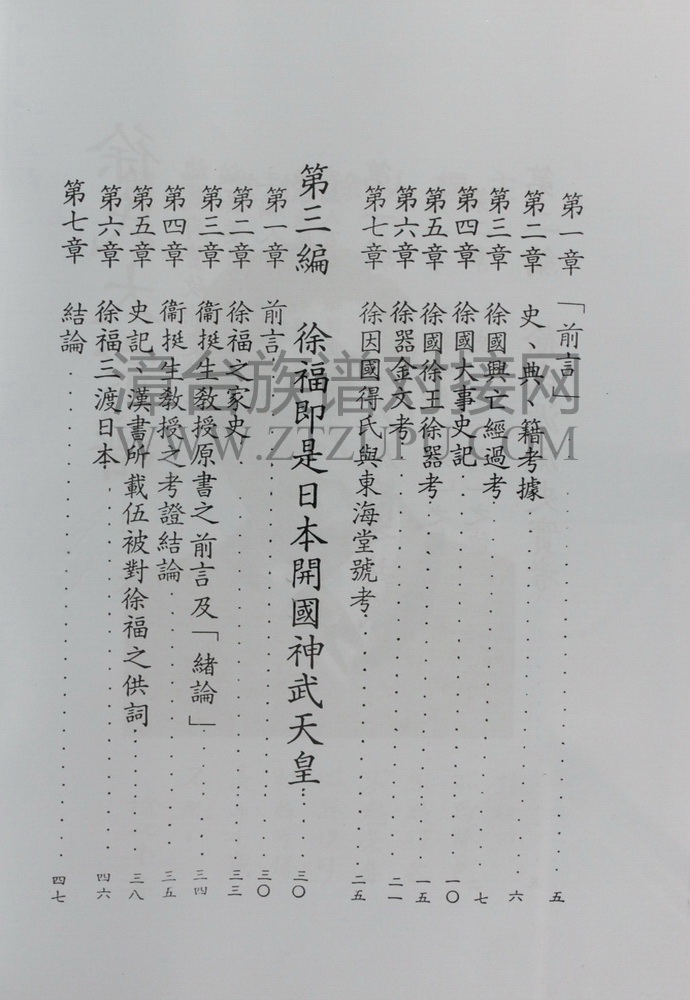 第一章 「前言」 五
第二章 史、典、籍考據 六
第三章 徐國興亡經過考 七
第四章 徐國大事史記 一〇
第五章 徐國徐王徐器考 一五
第六章 徐器金文考 二一
第七章 徐因國得氏與東海堂號考 二五
第三編 徐福即是日本開國神武天皇 三〇
第一章 前言 三〇
第二章 徐福之家史 三三
第三章 衞挺生教授原書之前言及「緒論」 三四
第四章 衞挺生教授之考證結論 三五
第五章 史記、漢書所載伍被對徐福之供詞 三八
第六章 徐福三渡日本 四六
第七章 結論 四七
漳台族谱对接网
WWW.ZTZUPU.COM